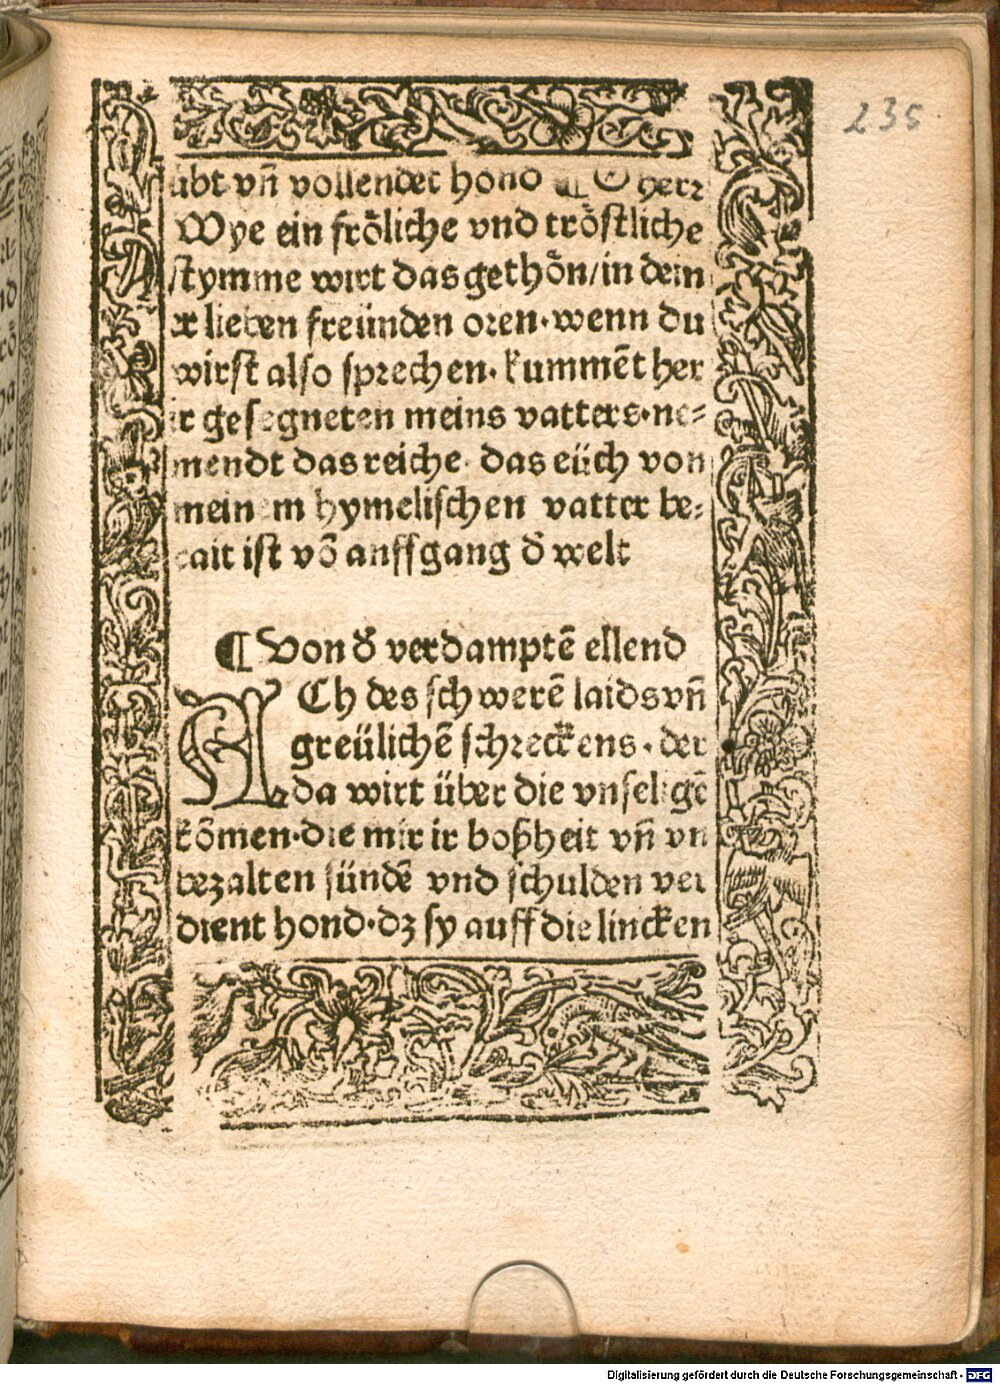 235
übt vñ vollendet hond ¶ O herr
Wye ein froͤliche vnd troͤstliche
stymme wirt das gethoͤn/in dein
er lieben freünden oren·wenn du
wirst also sprechen· kummẽt her
ir gesegneten meins vatters·ne⸗
mendt das reiche· das eüch von
meinem hymelischen vatter be⸗
rait ist võ anffgang đ welt
¶ Von đ verdamptẽ ellend
ACh des schwerẽ laids vñ
greülichẽ schreckens· der
da wirt über die vnseligẽ
kõmen·die mit ir boßheit vñ vn
bezalten sündẽ vnd schulden ver
dient hond·dz sy auff die lincken
Digitalisierung gefördert durch die Deutsche Forschungsgemeinschaft - DFG